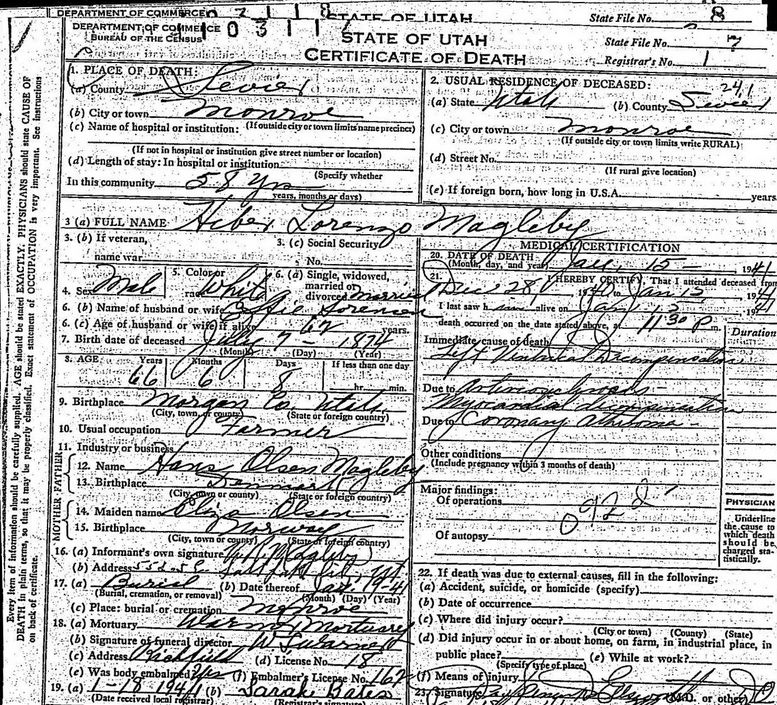 DEPARTMENT OF COMMERCE STATE OF UTAH State File No. 8
DEPARTMENT OF COMMERCE 10311 STATE OF UTAH State File No. 7
BUREAU OF THE CENSUS CERTIFICATE OF DEATH Registrar's No. 1
Every item of information should be carefully supplied. AGE should be stated EXACTLY. PHYSICIANS should state CAUSE OF
DEATH in plain terms, so that it may be properly identified. Exact statement of OCCUPATION is very important. See instructions
on back of certificate.
1. PLACE OF DEATH:
(a) County Sevier
(b) City or town Monroe
(If outside city or town limits name precinct)
(c) Name of hospital or institution:
(If not in hospital or institution give street number or location)
(d) Length of stay: In hospital or institution
(Specify whether
In this community 58 Yrs
years, months or days)
2. USUAL RESIDENCE OF DECEASED: 241
(a) State Utah (b) County Sevier
(c) City or town Monroe
(If outside city or town limits write RURAL)
(d) Street No.
(If rural give location)
(e) If foreign born, how long in U.S.A. years.
3 (a) FULL NAME Heber Lorenzo Magleby
3. (b) If veteran, name war
3. (c) Social Security No.
4. Sex Male 5. Color or race White 6. (a) Single, widowed, married or divorced married
6. (b) Name of husband or wife Effie Sorensen
6. (c) Age of husband or wife if alive 62 years.
7. Birth date of deceased July 7 - 1874
(Month) (Day) (Year)
8. AGE: Years Months Days If less than one day
66 6 8 hr. min.
9. Birthplace Morgan Co Utah
(City, town, or county) (State or foreign country)
10. Usual occupation Farmer
11. Industry or business
FATHER
12. Name Hans Olsen Magleby
13. Birthplace Denmark
(City, town or county) (State or foreign country)
MOTHER
14. Maiden name Olsen
15. Birthplace Norway
(City, town or county) (State of foreign country)
16. (a) Informant's own signature Magleby
(b) Address
17. (a) Burial (b) Date thereof
(Burial, cremation, or removal) (Month) (Day) (Year)
(c) Place: burial or cremation Monroe
18. (a) Mortuary Mortuary
(b) Signature of funeral director
(c) Address Richfield (d) License No. 18
(e) Was body embalmed? Yes (f) Embalmer's License No. 162
19. (a) 1-18 1941 (b) Sarah Bates
(Date received local registrar) (Registrar's signature)
MEDICAL CERTIFICATION
20. DATE OF DEATH Jan 15 - 1941
(Month, day, and year)
21. I HEREBY CERTIFY, That I attended deceased from
Dec 28 1940 to Jan 15 1941
I last saw him alive on Jan 1941
death occurred on the date stated above, at 11 30 P m.
Duration
Immediate cause of death
Left Ventricle Decompensation
Due to
Myocardial
Due to Coronary
Other conditions
(Include pregnancy within 3 months of death)
Major findings:
Of operations
092
Of autopsy
PHYSICIAN
Underline
the cause to
which death
should be
charged sta-
tistically.
22. If death was due to external causes, fill in the following:
(a) Accident, suicide, or homicide (specify)
(b) Date of occurrence
(c) Where did injury occur?
(City or town) (County) (State)
(d) Did injury occur in or about home, on farm, in industrial place, in
public place? (e) While at work?
(Specify type of place)
(f) Means of injury
23. Signature (M.D. or other)